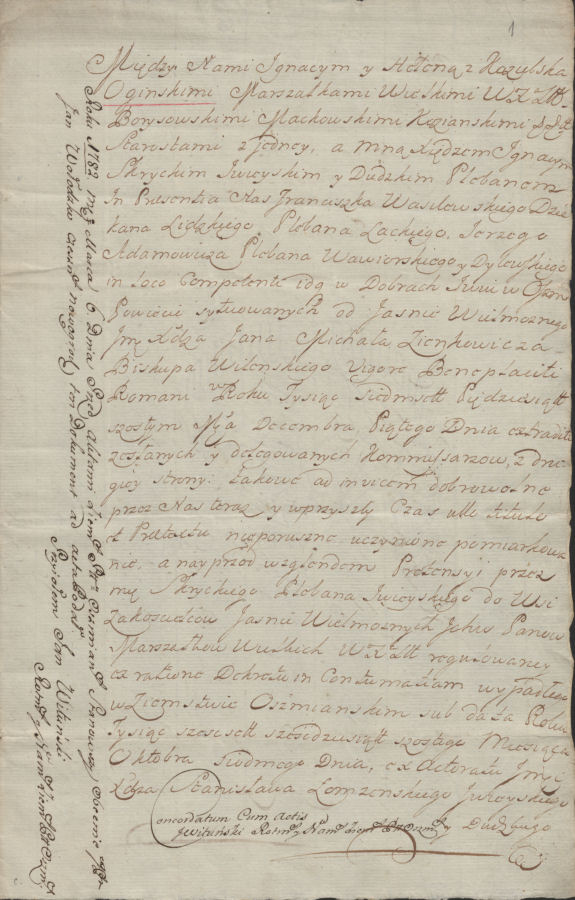 1
Między Nami Ignacym y Heleną z Kozielska
Oginskimi Marszałkami Wielkimi W. X. Litt.
Borysowskimi Mackowskimi Kozianskimi &
Starostami z jedney, a Mną Xiędzem Ignacym
Skryckim Iwieyskim y Dudzkim Plebanem
In Præsentia Nas Franciszka Wasilewskiego Dzie
kana Lidzkiego, Plebana Lackiego, Jerzego
Adamowicza Plebana Wawiorskiego y Dylewskiego
in Loco Competenti idq w Dobrach Iwiu w Oszm
Powiecie sytuowanych od Jasnie Wielmoznego
Jmę Xdza Jana Michała Zienkowicza
Biskupa Wilenskiego Vigore Beneplaciti
Romani Roku Tysiąc Siedmset Pięćdziesiąt
szostym Decembra Piątego Dnia extradite
zesłanych y delegowanych Kommissarzow, z dru
giey strony: Takowe ad invicem dobrowolne
przez Nas teraz y wprzyszły Czas ullo titulo
et Prætextu nieporuszne, uczynione pomiarkowa
nie, a nayprzod względem Pretensyi przez
mę Skryckiego Plebana Iwieyskiego do Wsi
Zakoscielców Jasnie Wielmoznych Ichm Panow
Marszałkow Wielkich W. X. Litt. regulowaney
ex ratione Dekretu in Contumatiam wypadłego
w Ziemstwie Oszmianskim sub data Roku
Tysiąc szescset szescdziesiąt szostego Miesiąca
Oktobra siodmego Dnia, ex Actoratu Jmę
Xdza Stanisława Łomzenskiego Iwieyskiego
y Dudzkiego
Concordatum Cum Actis
JWitunski Roten y Nam Ziem Ptt Oszm
Roku 1782 Mca Marca 6 Dnia Przed Aktami Ziem Ptt Oszmian Stanowszy Obecnie
Jan Wołodzko ten Dokument ad Acta Podał
Przyiołem Jan Wituński
Rotm y Nam Ziem Ptt Oszm